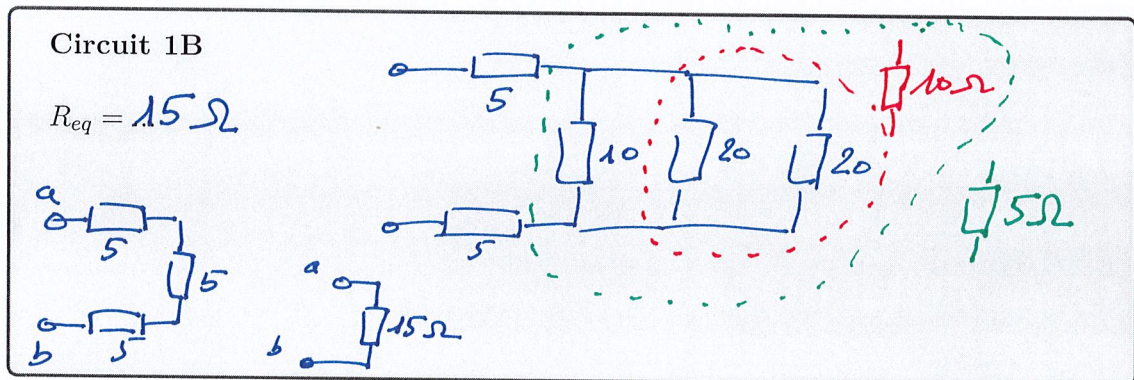 Circuit 1B
R_eq = 15 Ω
5
10
20
20
10Ω
5
5Ω
a
5
5
b
5
a
15Ω
b